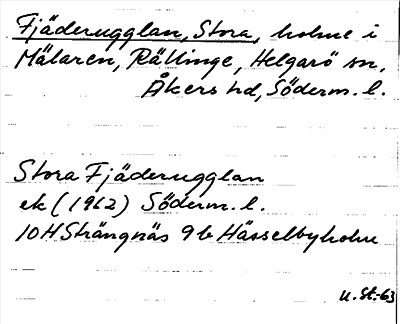 Fjäderugglan, Stora, holme i
Mälaren, Rällinge, Helgarö sn,
Åkers hd, Söderm. l.
Stora Fjäderugglan
ek (1962) Söderm. l.
10H Strängnäs 9b Hässelbyholm
U. St.-63